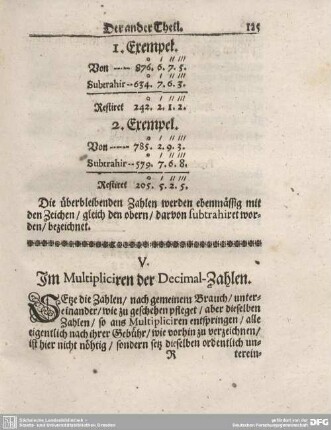 Der ander Theil. 125
1. Exempel.
0 I II III
Von —— 876. 6. 7. 5.
0 I II III
Subtrahir--634. 7. 6. 3.
0 I II III
Restiret 242. 2. 1. 2.
2. Exempel.
0 I II III
Von —— 785. 2. 9. 3.
0 I II III
Subtrahir--579. 7. 6. 8.
0 I II III
Restiret 205. 5. 2. 5.
Die überbleibenden Zahlen werden ebenmässig mit
den Zeichen/ gleich den obern/ darvon subtrahiret wor-
den/ bezeichnet.
V.
Im Multipliciren der Decimal-Zahlen.
SEtze die Zahlen/ nach gemeinem Brauch/ unter-
einander/ wie zu geschehen pfleget/ aber dieselben
Zahlen/ so aus Multipliciren entspringen/ alle
eigentlich nach ihrer Gebühr/ wie vorhin zu verzeichnen/
ist hier nicht nöhtig/ sondern setz dieselben ordentlich un-
R terein-
Sächsische Landesbibliothek -
Staats- und Universitätsbibliothek Dresden
gefördert von der
Deutschen Forschungsgemeinschaft
DFG